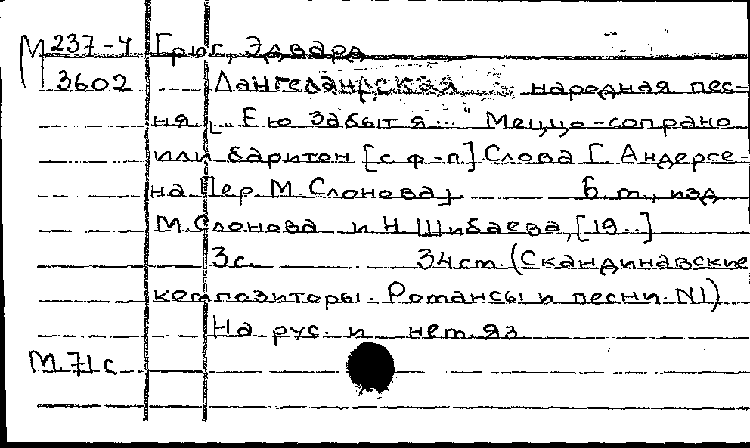 М 237-4 Григ, Эдвард
3602 Лангеландская народная пес-
ня „Ею забыт я..." Меццо-сопрано
или баритон [с ф-п.] Слова Г. Андерсе-
на Пер. М. Слонова, б. т., изд
М. Слонова и Н. Шибаева, [19..]
3с. 34 cm. (Скандинавские
композиторы. Романсы и песни. N1)
На рус. и нем. яз
М. 71 с